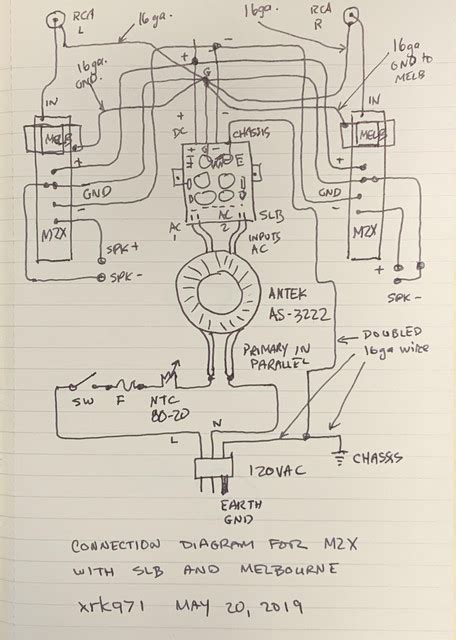 RCA L
16ga.
16ga.
RCA R
16ga GND.
16ga GND to MELB
IN
IN
MELB
MELB
+
-
G
+
DC
-
CHASSIS
+
GND
-
M2X
+
GND
-
M2X
SPK+
SPK-
+
-
SPK-
AC 1
AC 2
SLB
INPUTS AC
ANTEK
AS-3222
PRIMARY IN
PARALLEL
DOUBLED
16ga wire
SW
F
NTC
80-20
L
N
120VAC
CHASSIS
EARTH
GND
CONNECTION DIAGRAM FOR M2X
WITH SLB AND MELBOURNE
xrk971 MAY 20, 2019